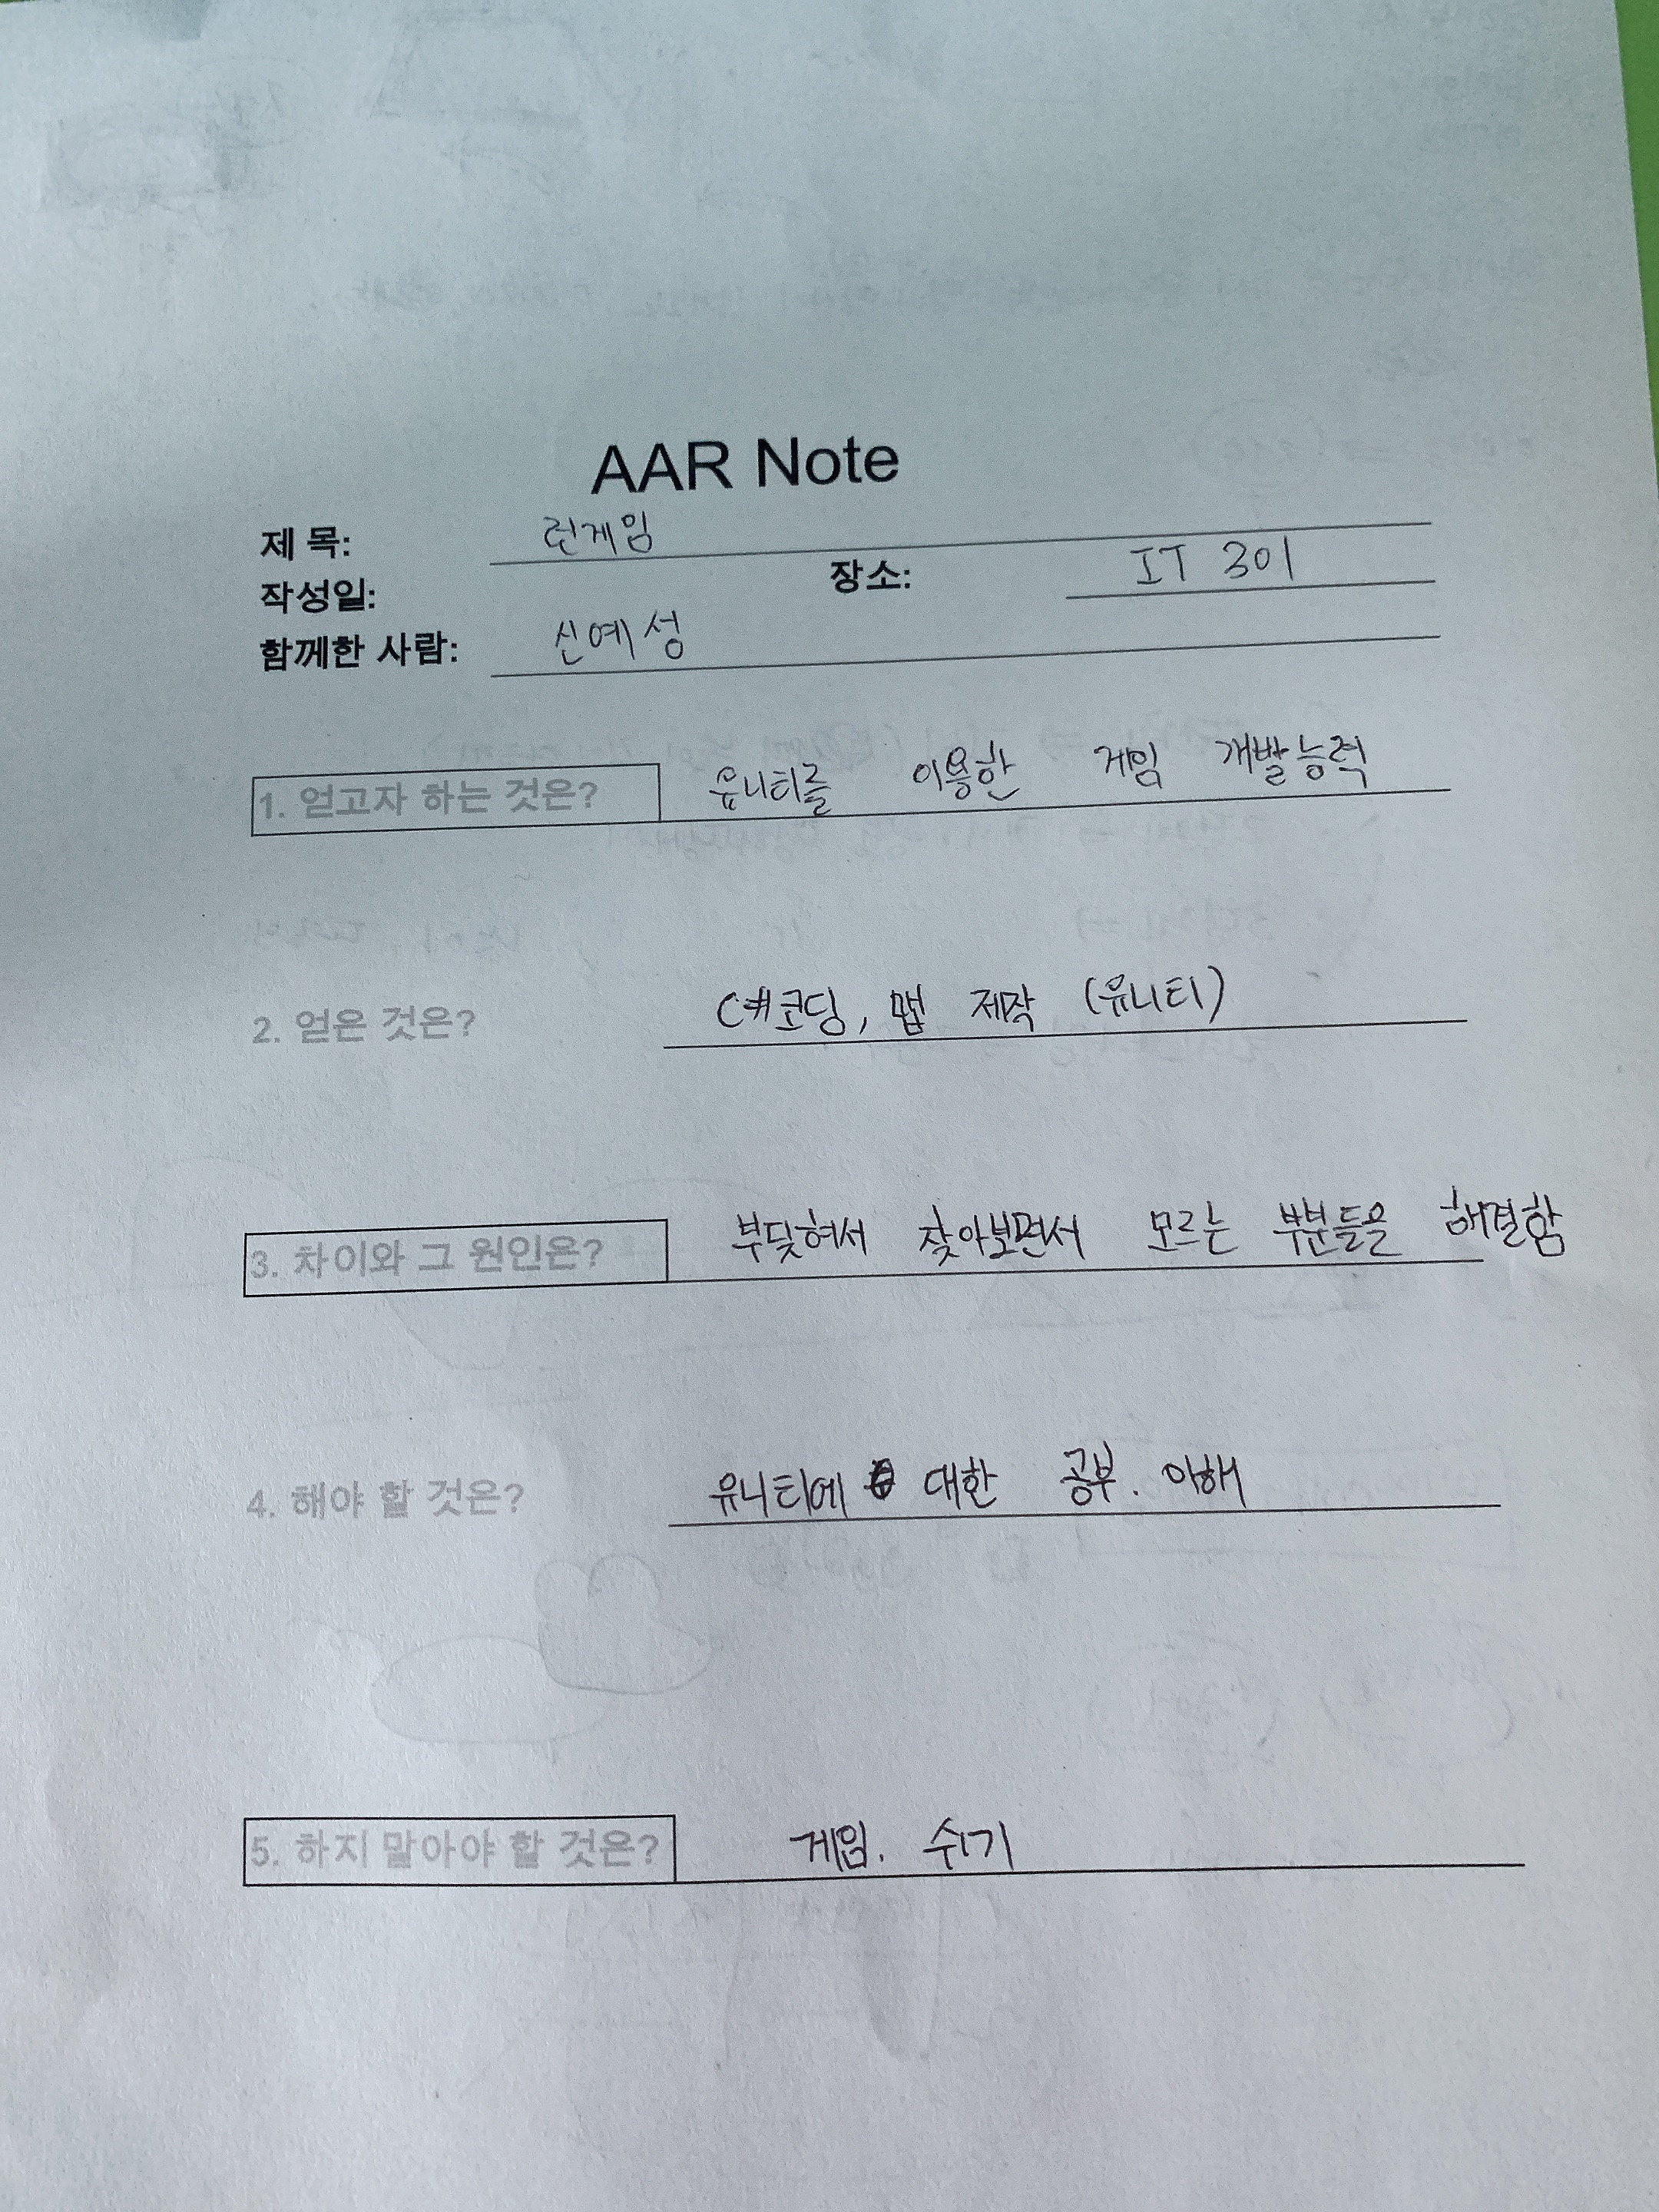 AAR Note
제 목: 런게임
작성일: 장소: IT 301
함께한 사람: 신예성
1. 얻고자 하는 것은? 유니티를 이용한 게임 개발능력
2. 얻은 것은? C#코딩, 맵 제작 (유니티)
3. 차이와 그 원인은? 부딪혀서 찾아보면서 모르는 부분들을 해결함
4. 해야 할 것은? 유니티에 대한 공부. 이해
5. 하지 말아야 할 것은? 게임. 쉬기